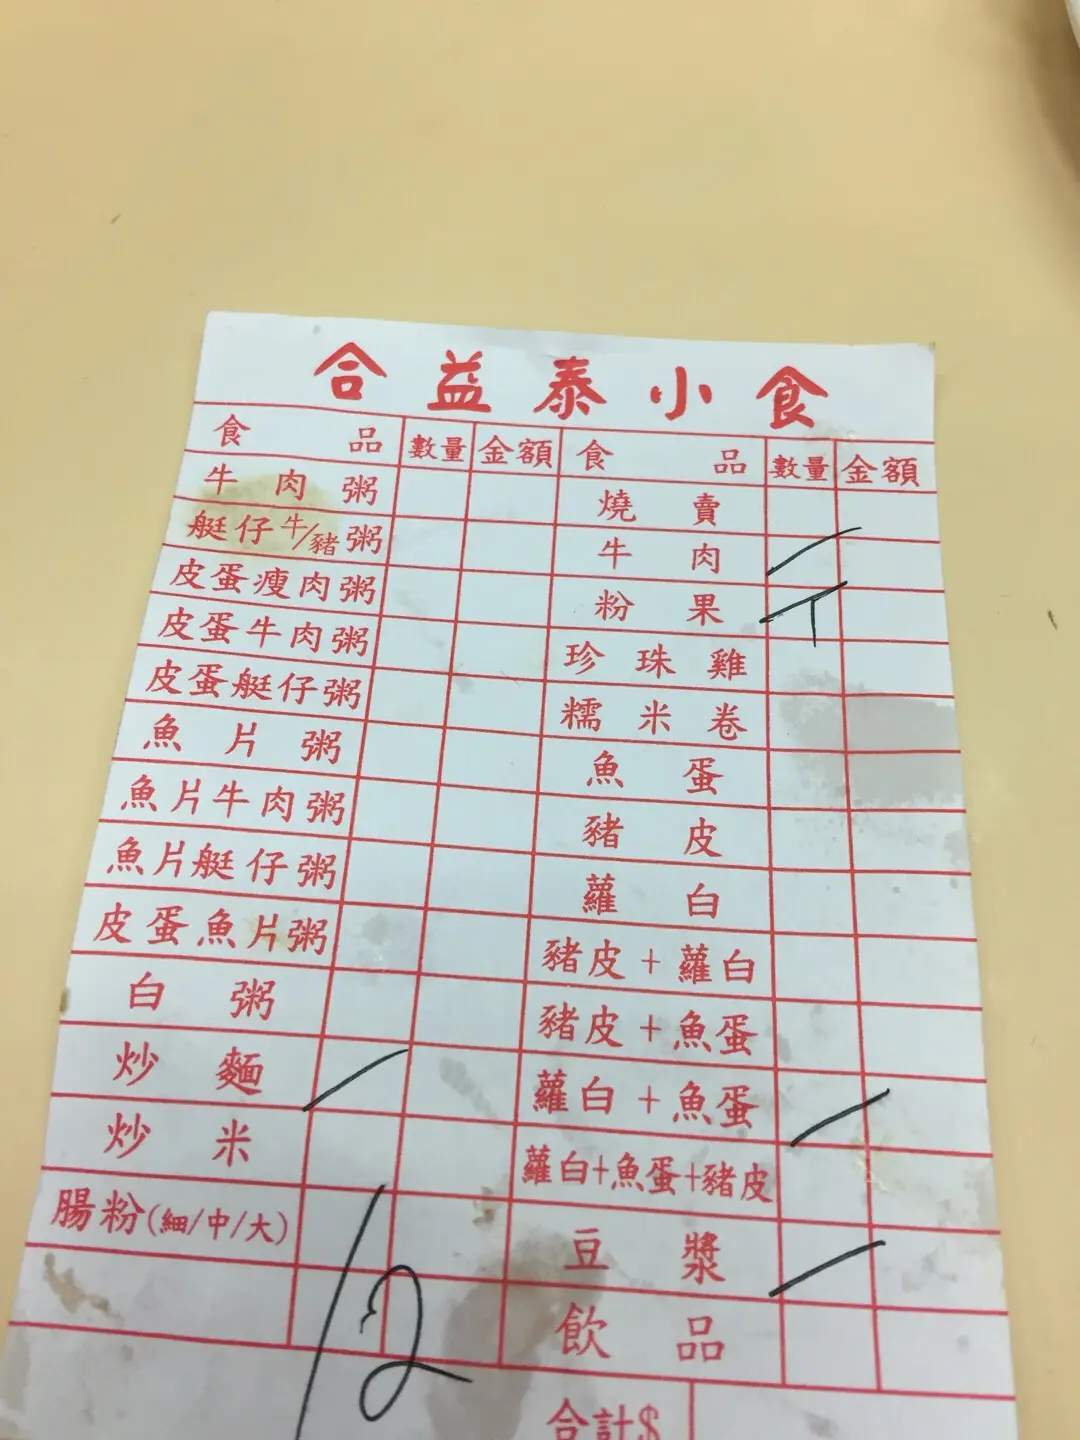 合益泰小食
食品 數量 金額 食品 數量 金額
牛肉粥 燒賣
艇仔牛/豬粥 牛肉 一
皮蛋瘦肉粥 粉果 T
皮蛋牛肉粥 珍珠雞
皮蛋艇仔粥 糯米卷
魚片粥 魚蛋
魚片牛肉粥 豬皮
魚片艇仔粥 蘿白
皮蛋魚片粥 豬皮+蘿白
白粥 豬皮+魚蛋
炒麵 一 蘿白+魚蛋 一
炒米 蘿白+魚蛋+豬皮
腸粉(細/中/大) 豆漿 一
飲品
12
合計$